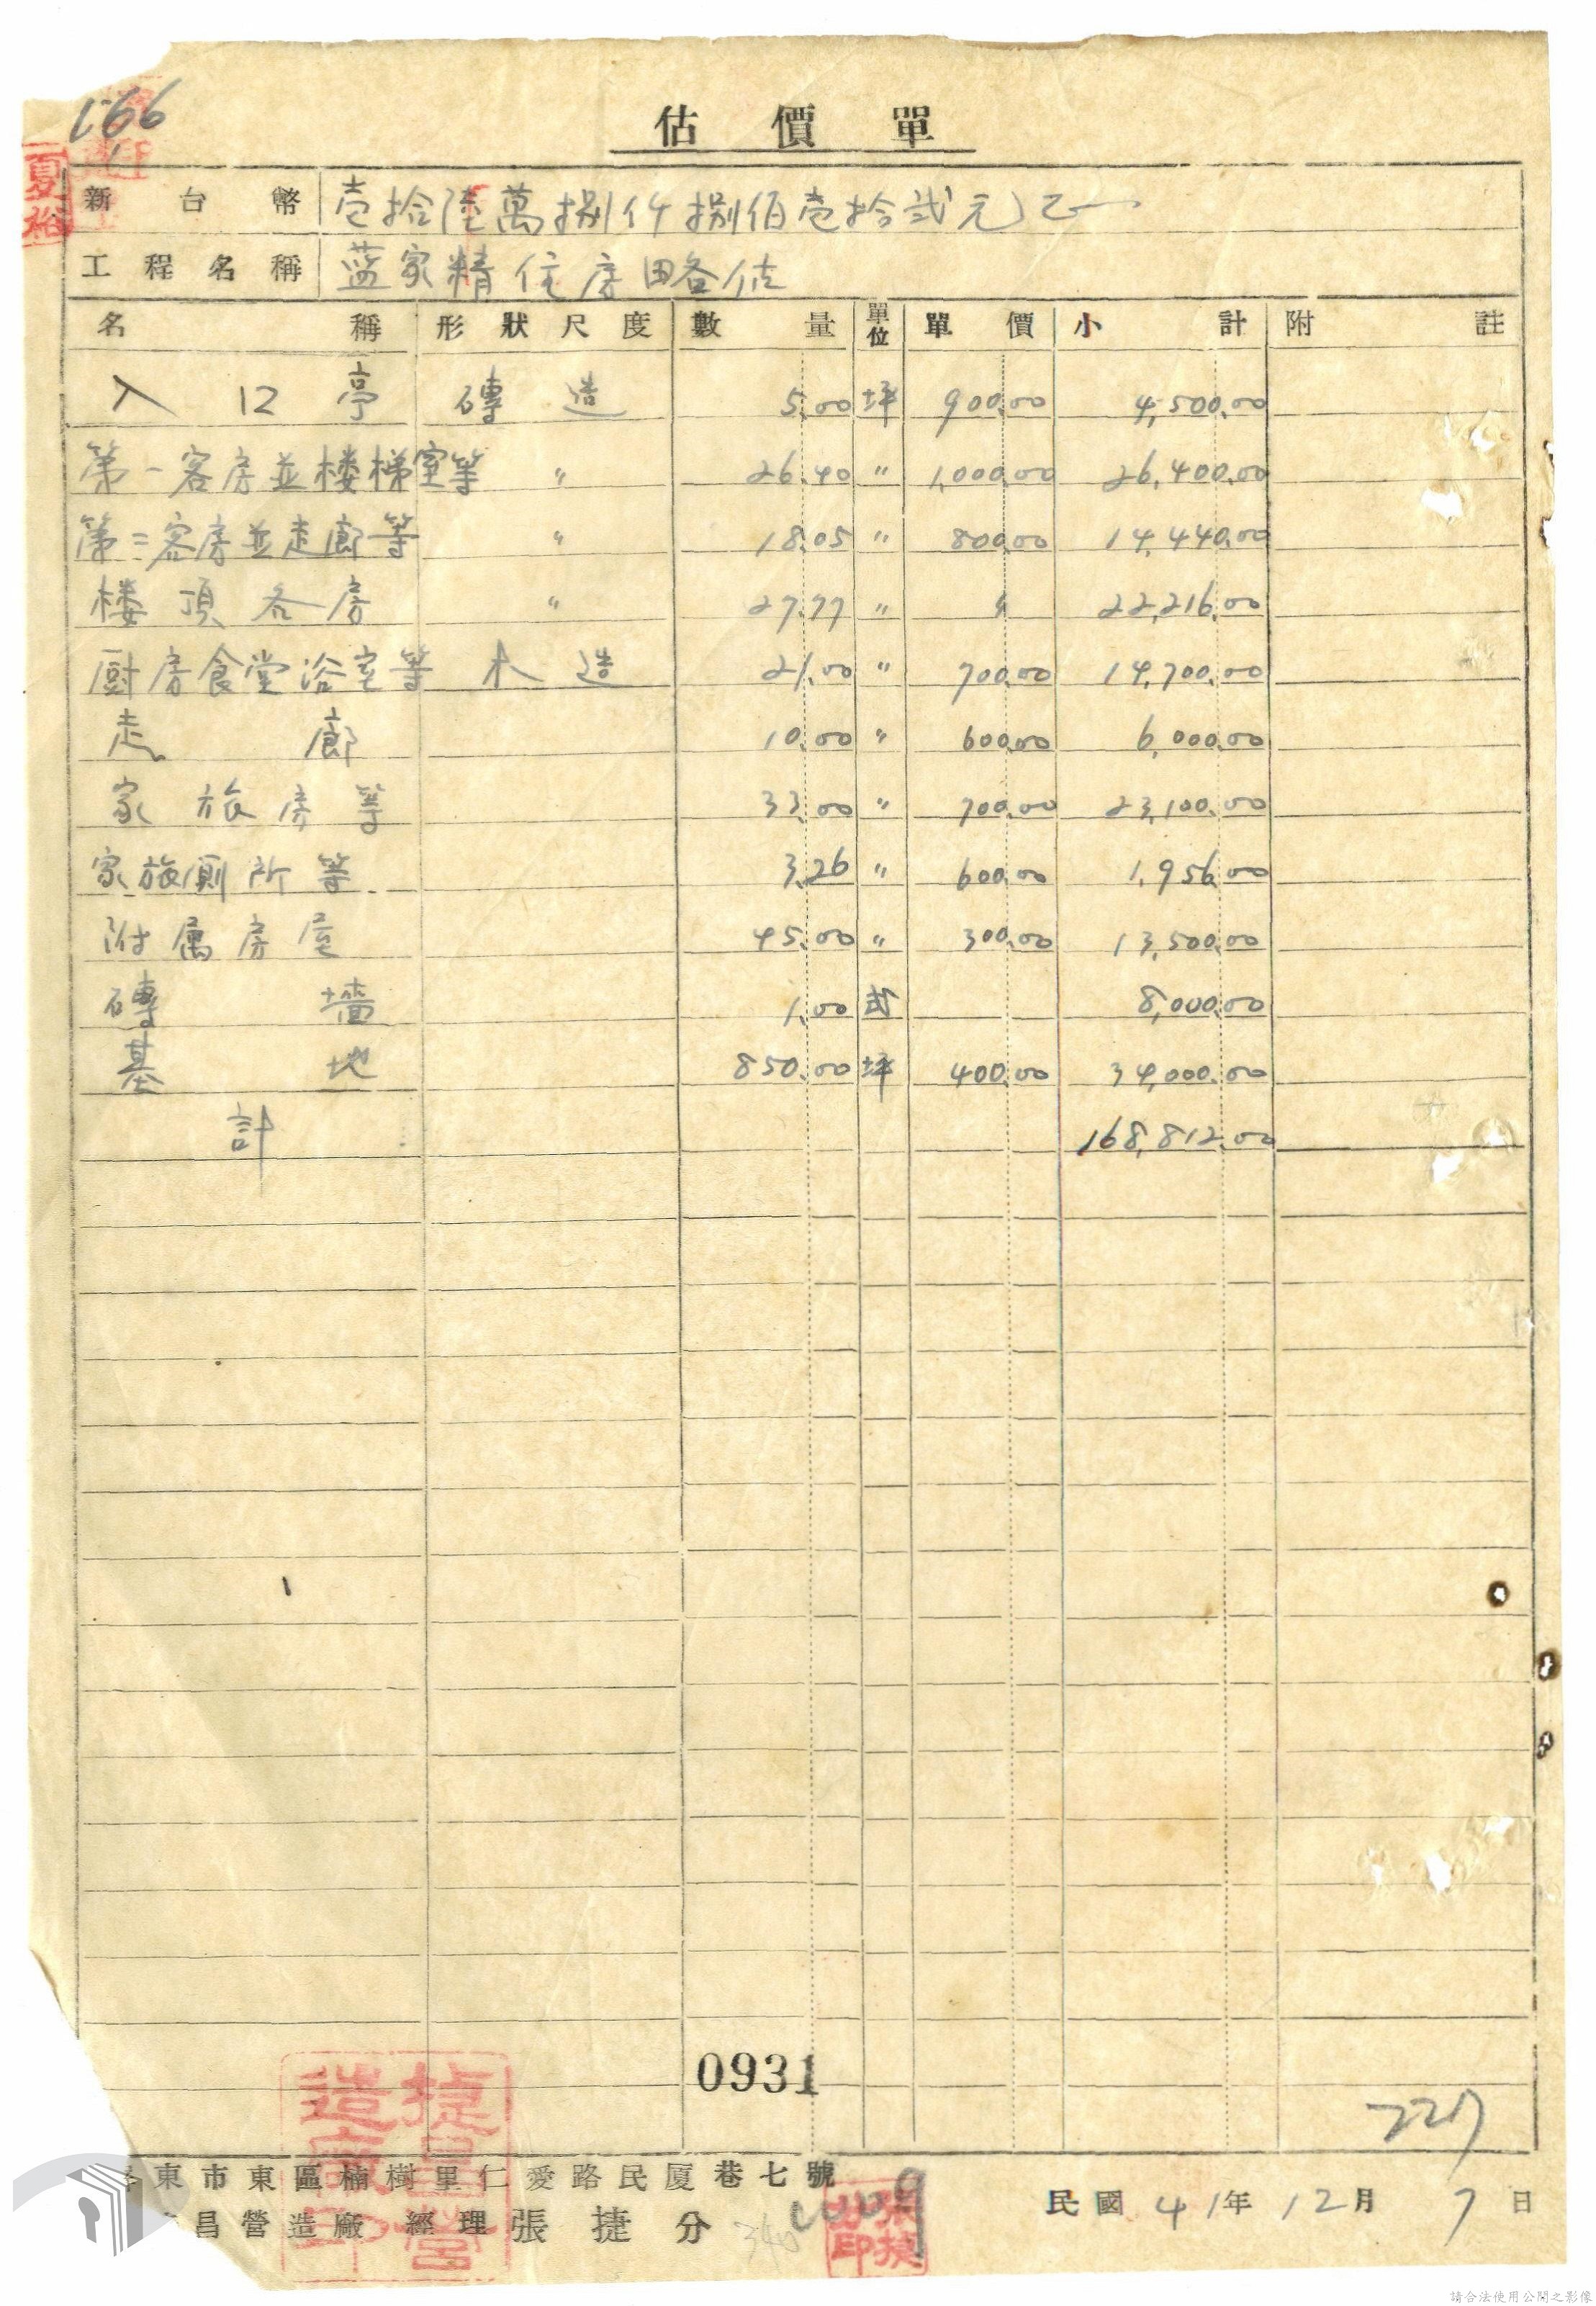 166
估價單
新台幣 壹拾陸萬捌仟捌佰壹拾弍元正
工程名稱 蓝家精住房略估
名稱 形狀尺度 數量 單位 單價 小計 附註
入口亭 磚造 5.00 坪 900.00 4,500.00
第一客房並楼梯室等 〃 26.40 〃 1,000.00 26,400.00
第二客房並走廊等 〃 18.05 〃 800.00 14,440.00
楼頂各房 〃 27.77 〃 〃 22,216.00
厨房食堂浴室等 木造 21.00 〃 700.00 14,700.00
走廊 10.00 〃 600.00 6,000.00
家族房等 33.00 〃 700.00 23,100.00
家族厠所等 3.26 〃 600.00 1,956.00
附属房屋 45.00 〃 300.00 13,500.00
磚墻 1.00 式 8,000.00
基地 850.00 坪 400.00 34,000.00
計 168,812.00
0931
227
東市東區楠樹里仁愛路民厦巷七號
昌營造廠 經理張捷分
民國41年12月7日
捷昌營造廠印
請合法使用公開之影像